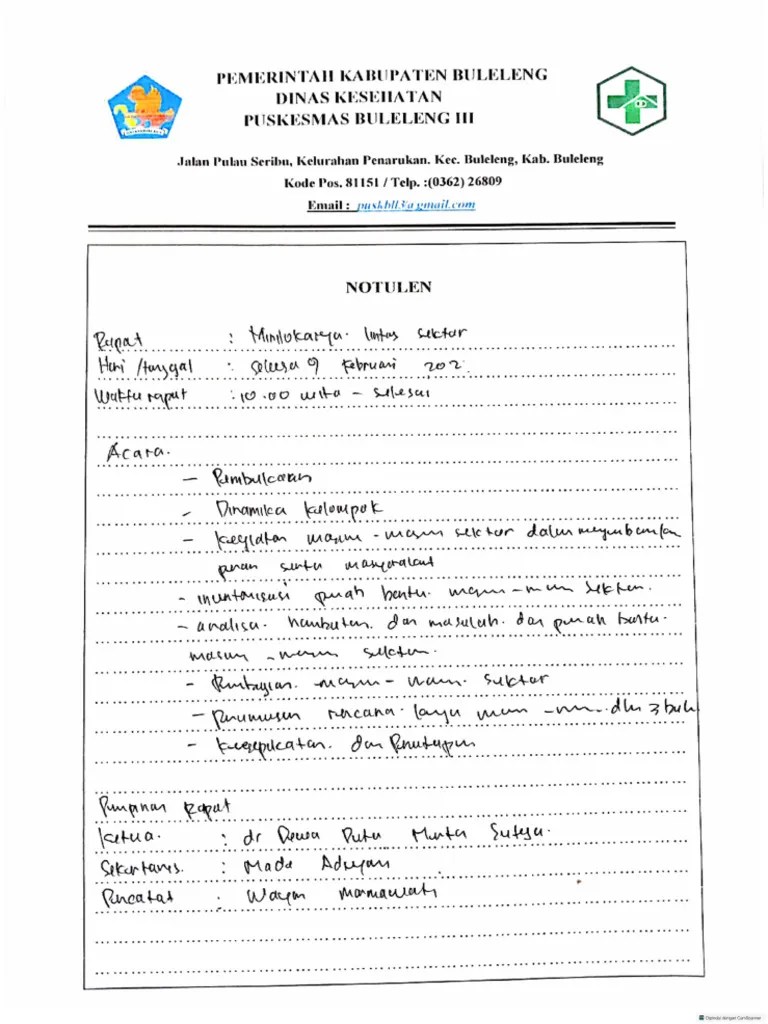 PEMERINTAH KABUPATEN BULELENG
DINAS KESEHATAN
PUSKESMAS BULELENG III
Jalan Pulau Seribu, Kelurahan Penarukan. Kec. Buleleng, Kab. Buleleng
Kode Pos. 81151 / Telp. :(0362) 26809
Email : puskbll3@gmail.com
NOTULEN
Rapat : Minilokarya lintas sektor
Hari /tanggal : Selasa 9 Februari 202
Waktu rapat : 10.00 wita - selesai
Acara.
- Pembukaan
- Dinamika kelompok
- kegiatan masing - masing sektor dalam
peran serta masyarakat
- inventarisasi masing - sektor.
- analisa. hambatan. dan masalah. dan
masing - masing sektor.
- Pembagian. masing - sektor
- Perumusan rencana. 3
- kesepakatan. dan Penutupan
Pimpinan Rapat
Ketua. : dr Dewa Putu Suteja.
Sekertaris. : Made
Pencatat : Wayan
Dipindai dengan CamScanner